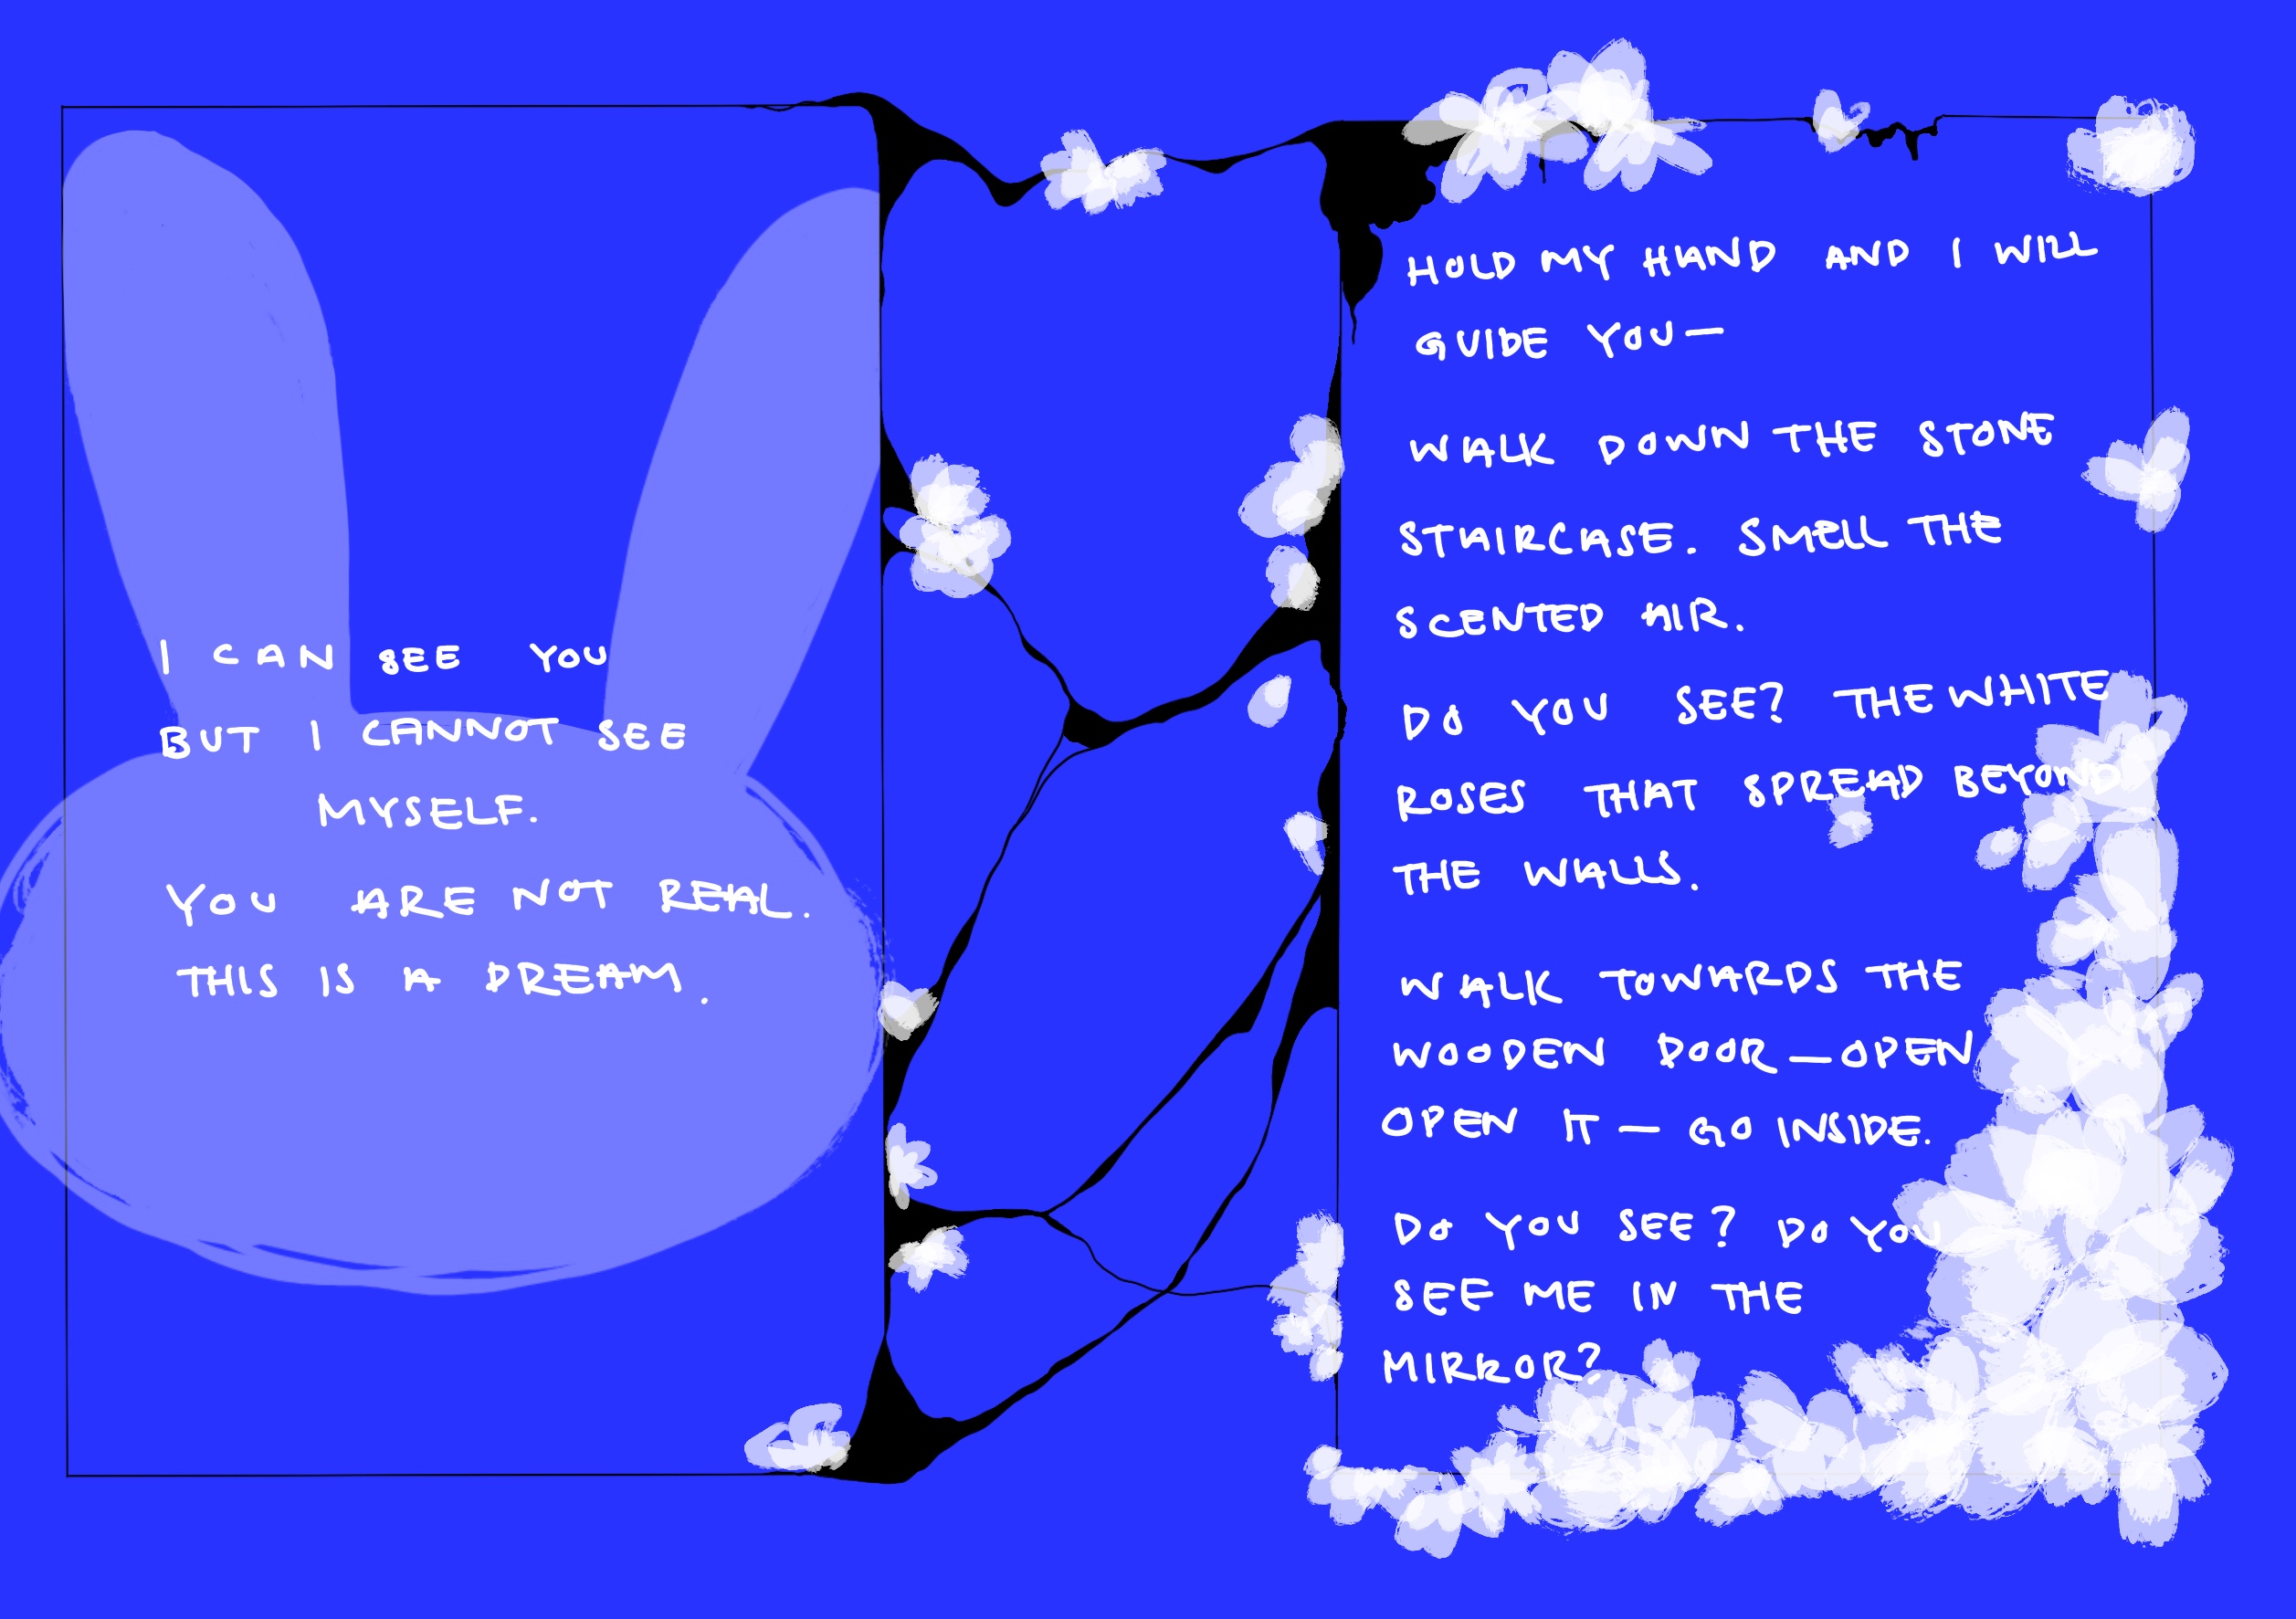 I CAN SEE YOU
BUT I CANNOT SEE
MYSELF.
YOU ARE NOT REAL.
THIS IS A DREAM.
HOLD MY HAND AND I WILL
GUIDE YOU—
WALK DOWN THE STONE
STAIRCASE. SMELL THE
SCENTED AIR.
DO YOU SEE? THE WHITE
ROSES THAT SPREAD BEYOND
THE WALLS.
WALK TOWARDS THE
WOODEN DOOR—OPEN
OPEN IT— GO INSIDE.
DO YOU SEE? DO YOU
SEE ME IN THE
MIRROR?